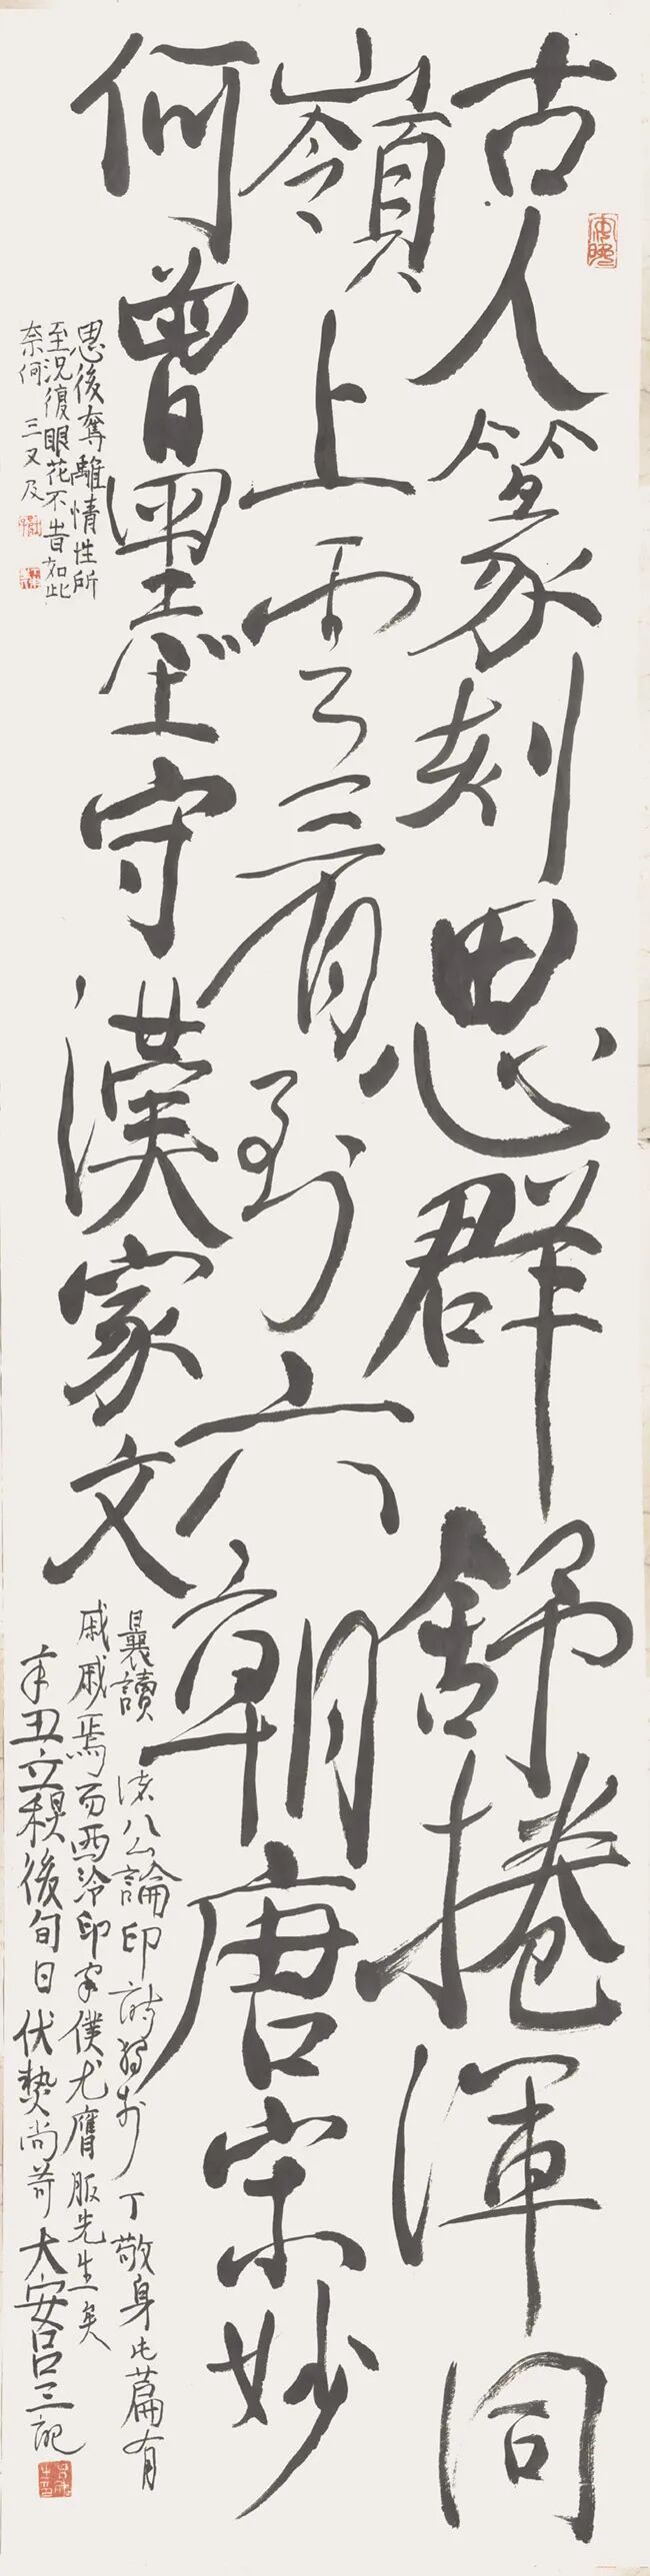 古人篆刻思群舒捲渾同
嶺上雲看到六朝唐宋妙
何曾墨守漢家文
曩讀諸公論印詩獨於丁敬身此篇有
戚戚焉而西泠印家僕尤膺服先生矣
辛丑立秋後旬日伏熱尚苛大安呂三記
思後奪離情性所
至況復眼花不眚如此
奈何 三又及